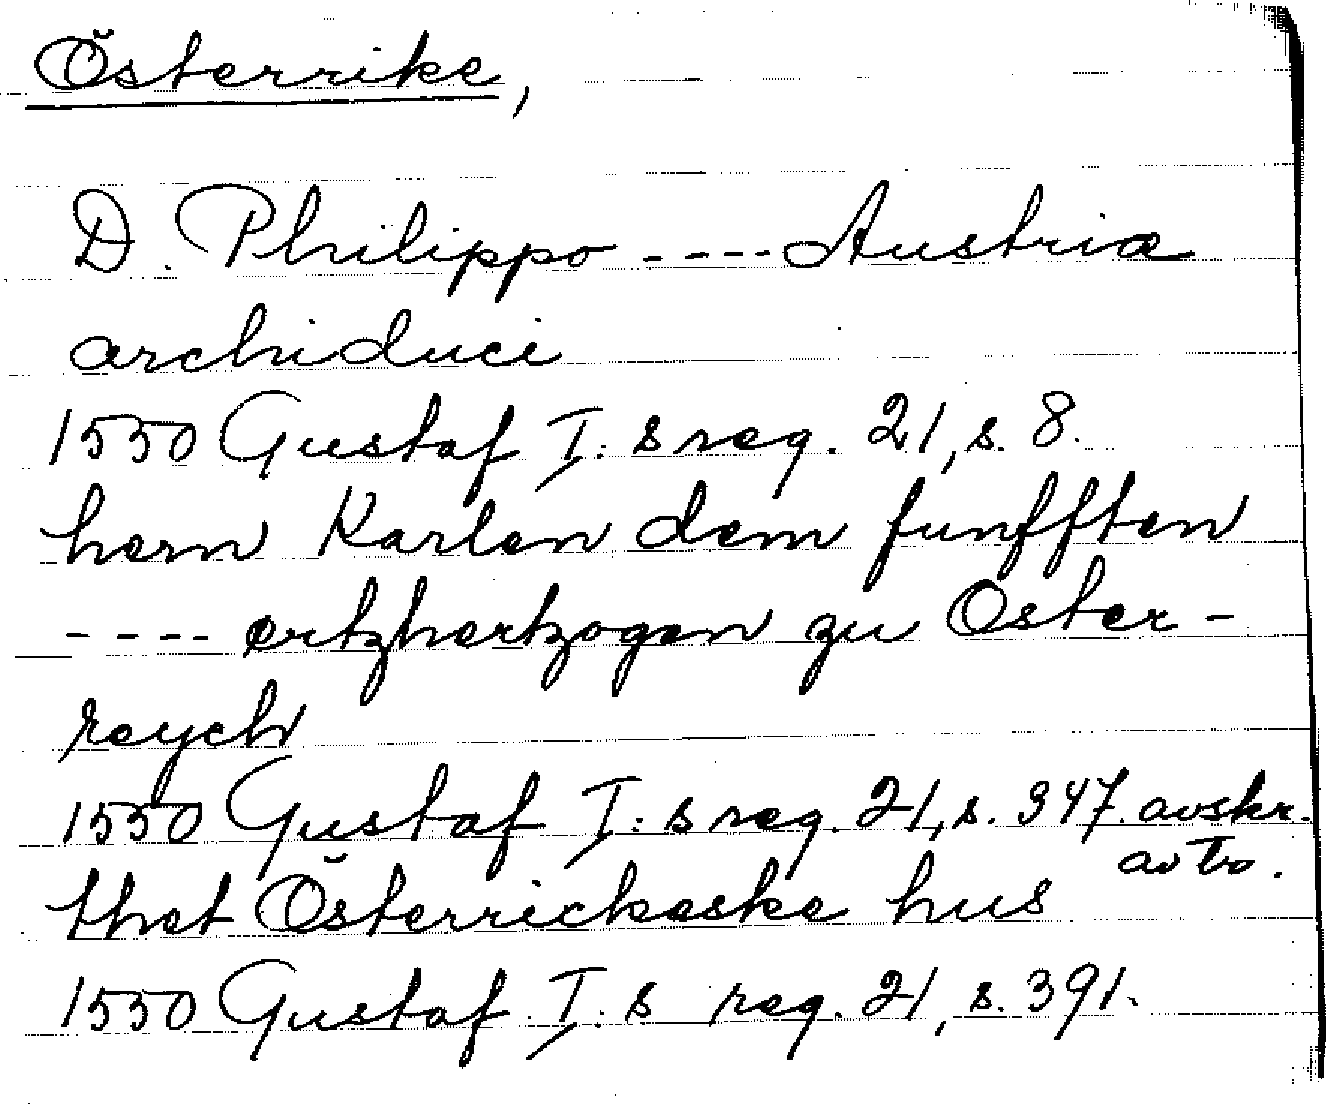 Österrike,
D. Philippo ---- Austriæ
archiduci
1550 Gustaf I:s reg. 21, s. 8.
hern Karlen dem funfften
---- ertzhertzogen zu Öster-
reych
1550 Gustaf I:s reg. 21, s. 347. avskr.
av tr.
thet Österrickeske hus
1550 Gustaf I:s reg. 21, s. 391.